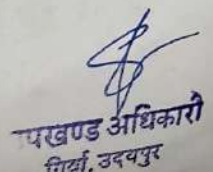 पखण्ड अधिकारी
गिर्वा, उदयपुर